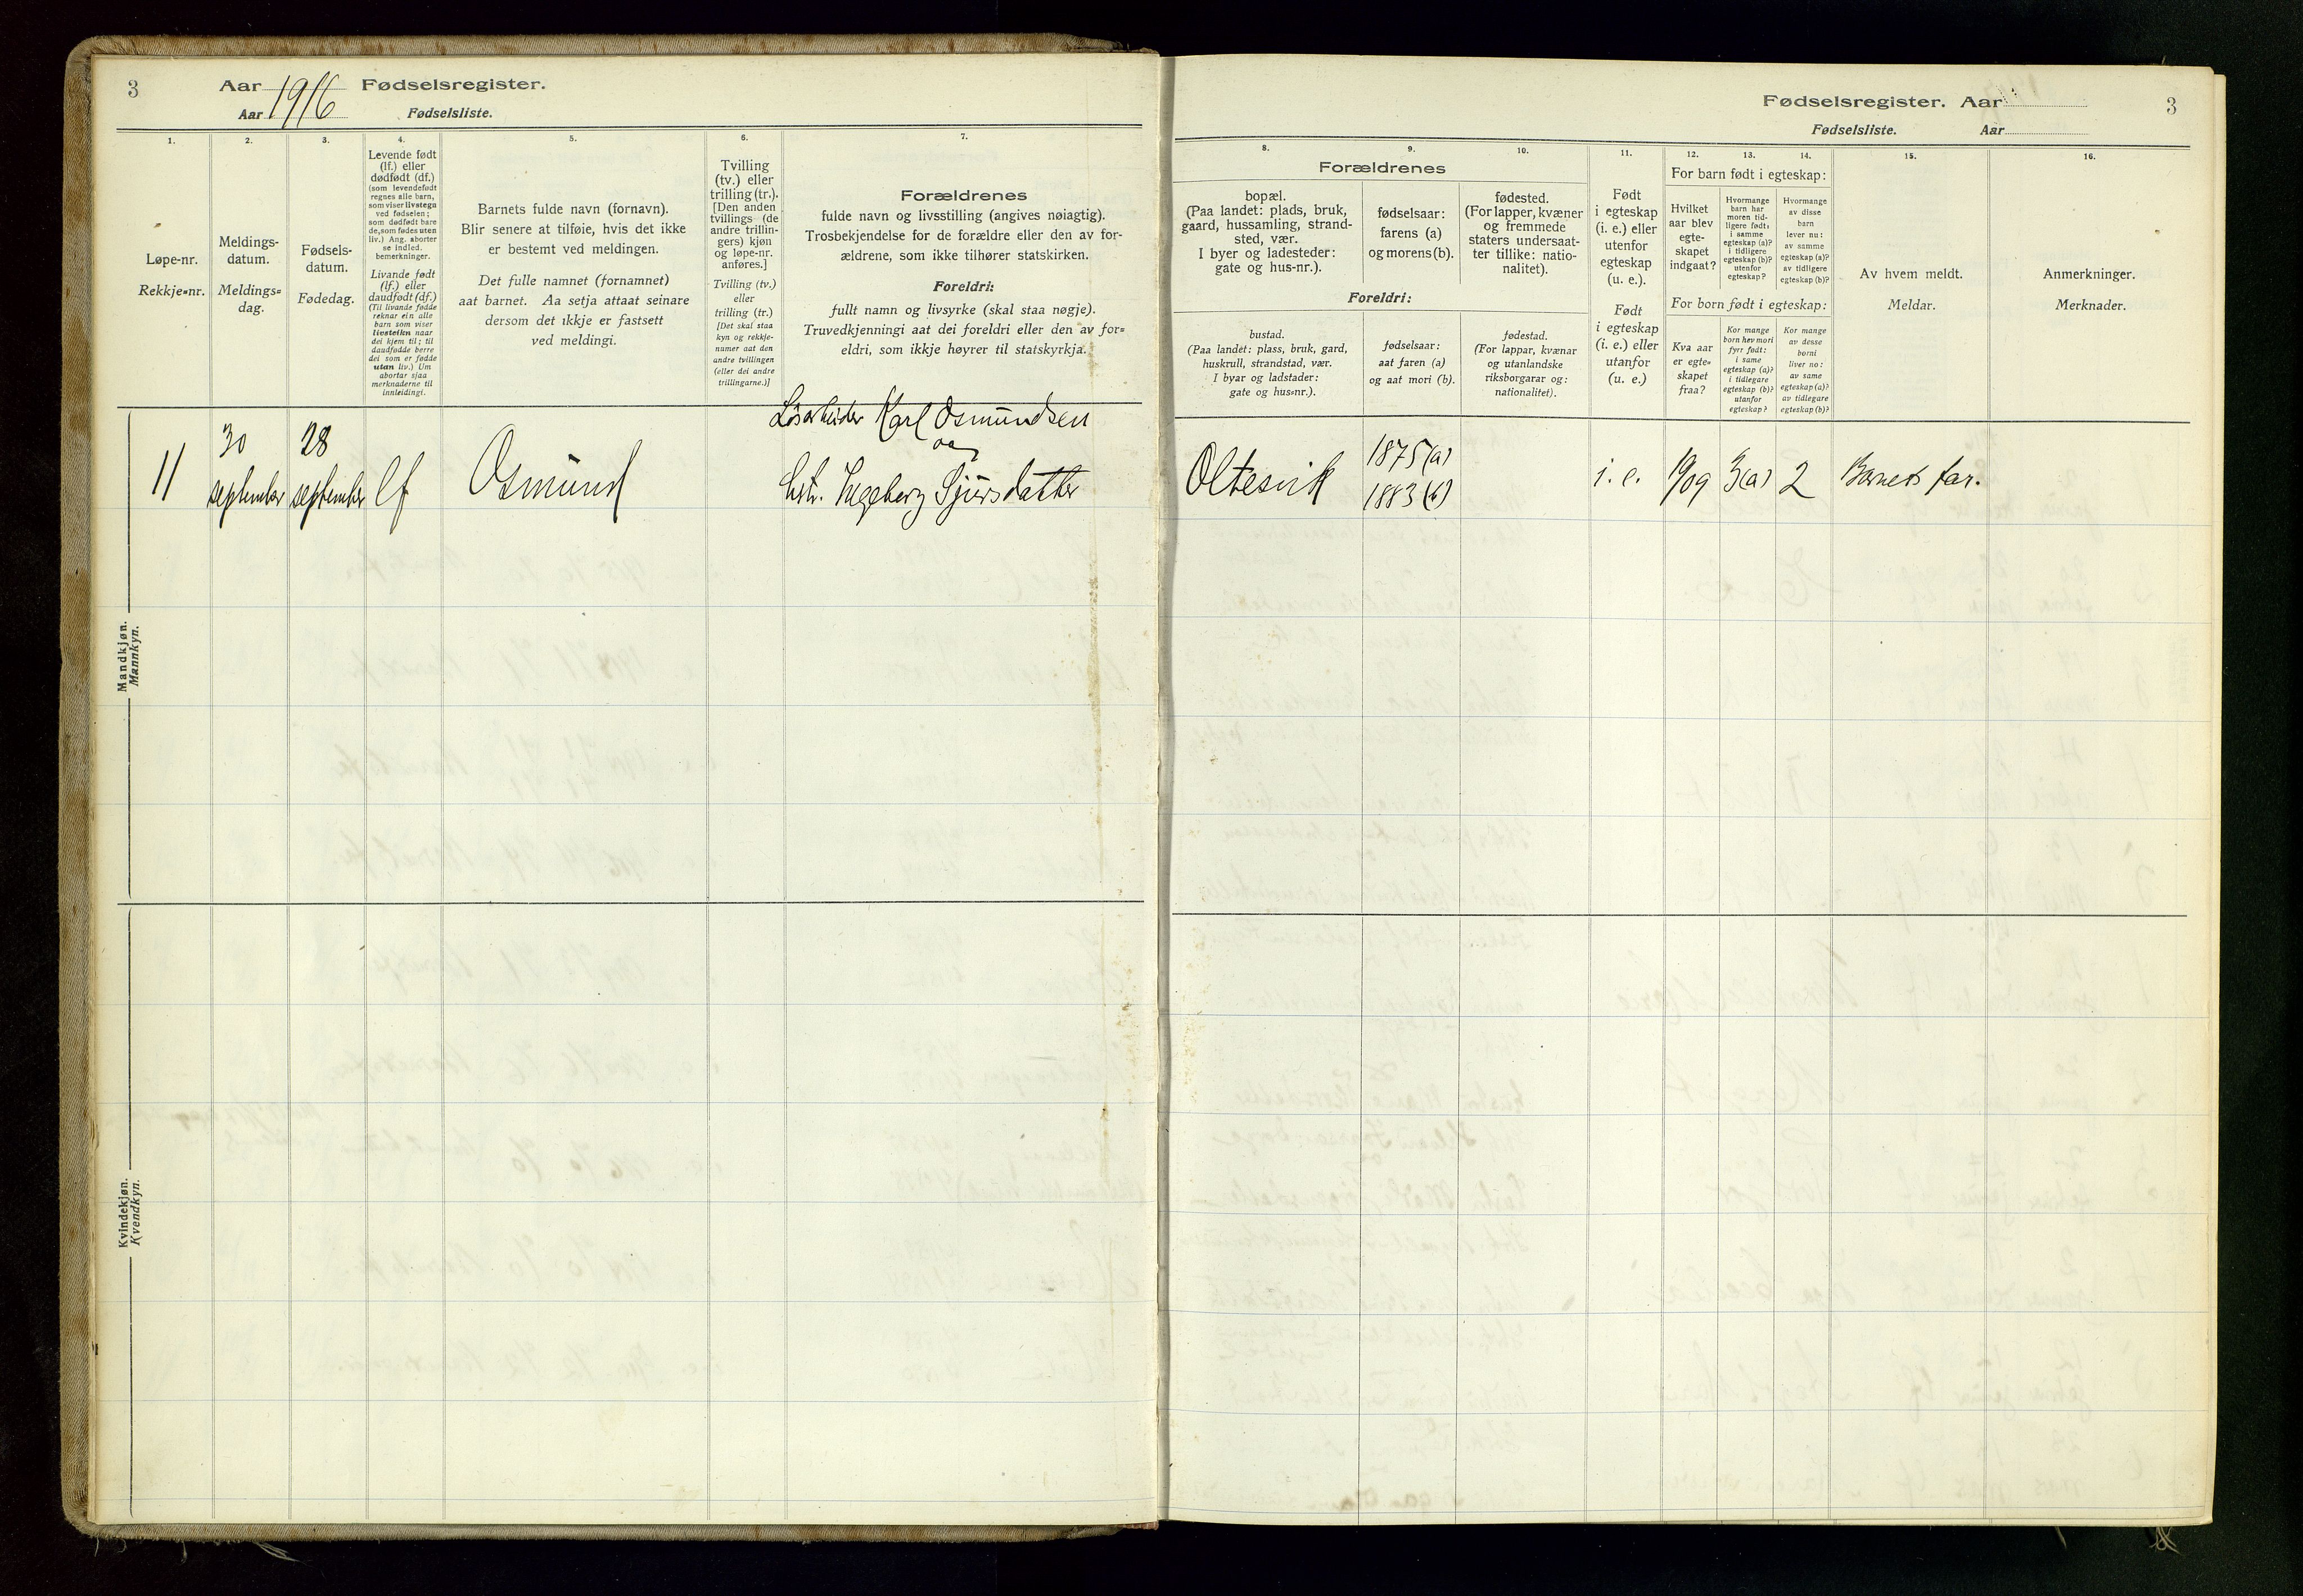 3
Aar 1916 Fødselsregister.
Aar Fødselsliste.
1.
Løpe-nr.
Rekkje-nr.
2.
Meldings-
datum.
Meldings-
dag.
3.
Fødsels-
datum.
Fødedag.
4.
Levende født
(lf.) eller
dødfødt (df.)
(som levendefødt
regnes alle barn,
som viser livstegn
ved fødselen;
som dødfødt bare
de, som fødes uten
liv.) Ang. aborter
se indled.
bemerkninger.
Livande fødd
(lf.) eller
daudfødt (df.)
(Til livande fødde
reknar ein alle
barn som viser
livsteikn naar
dei kjem til; til
daudfødde berre
dei som er fødde
utan liv.) Um
abortar sjaa
merknaderne til
innleidingi.
5.
Barnets fulde navn (fornavn).
Blir senere at tilføie, hvis det ikke
er bestemt ved meldingen.
Det fulle namnet (fornamnet)
aat barnet. Aa setja attaat seinare
dersom det ikkje er fastsett
ved meldingi.
6.
Tvilling
(tv.) eller
trilling (tr.).
[Den anden
tvillings (de
andre trillin-
gers) kjøn
og løpe-nr.
anføres.]
Tvilling (tv.)
eller
trilling (tr.)
[Det skal staa
kyn og rekkje-
numer aat den
andre tvillingen
(eller dei andre
trillingarne.)]
7.
Forældrenes
fulde navn og livsstilling (angives nøiagtig).
Trosbekjendelse for de forældre eller den av for-
ældrene, som ikke tilhører statskirken.
Foreldri:
fullt namn og livsyrke (skal staa nøgje).
Truvedkjenningi aat dei foreldri eller den av for-
eldri, som ikkje høyrer til statskyrkja.
Mandkjøn.
Mannkyn.
11
30
september
28
september
lf
Osmund
Løsarbeider Karl Osmundsen
og
hstr. Ingeborg Sjursdatter
Kvindekjøn.
Kvendkyn.
Fødselsregister. Aar
3
Fødselsliste. Aar
8.
9.
10.
Forældrenes
bopæl.
(Paa landet: plads, bruk,
gaard, hussamling, strand-
sted, vær.
I byer og ladesteder:
gate og hus-nr.).
fødselsaar:
farens (a)
og morens (b).
fødested.
(For lapper, kvæner
og fremmede
staters undersaat-
ter tillike: natio-
nalitet).
Foreldri:
bustad.
(Paa landet: plass, bruk, gard,
huskrull, strandstad, vær.
I byar og ladstader:
gate og hus-nr.).
fødselsaar:
aat faren (a)
og aat mori (b).
fødestad.
(For lappar, kvænar
og utanlandske
riksborgarar og:
nationalitet).
11.
Født
i egteskap
(i. e.) eller
utenfor
egteskap
(u. e.).
Født
i egteskap
(i. e.) eller
utanfor
(u. e.)
12.
13.
14.
For barn født i egteskap:
Hvilket
aar blev
egte-
skapet
indgaat?
Hvormange
barn har
moren tid-
ligere født:
i samme
egteskap (a)?
i tidligere
egteskap (b)?
utenfor
egteskap?
Hvormange
av disse
barn
lever nu:
av samme
egteskap (a)?
av tidligere
egteskap (b)?
For born født i egteskap:
Kva aar
er egte-
skapet
fraa?
Kor mange
born hev mori
fyrr født:
i same
egteskap (a)?
i tidlegare
egteskap (b)?
utanfor
egteskap?
Kor mange
av desse
borni
liver no:
av same
egteskap (a)?
av tidlegare
egteskap (b)?
15.
Av hvem meldt.
Meldar.
16.
Anmerkninger.
Merknader.
Oltesvik
1875 (a)
1883 (b)
i. e.
1909
3 (a)
2
Barnets far.